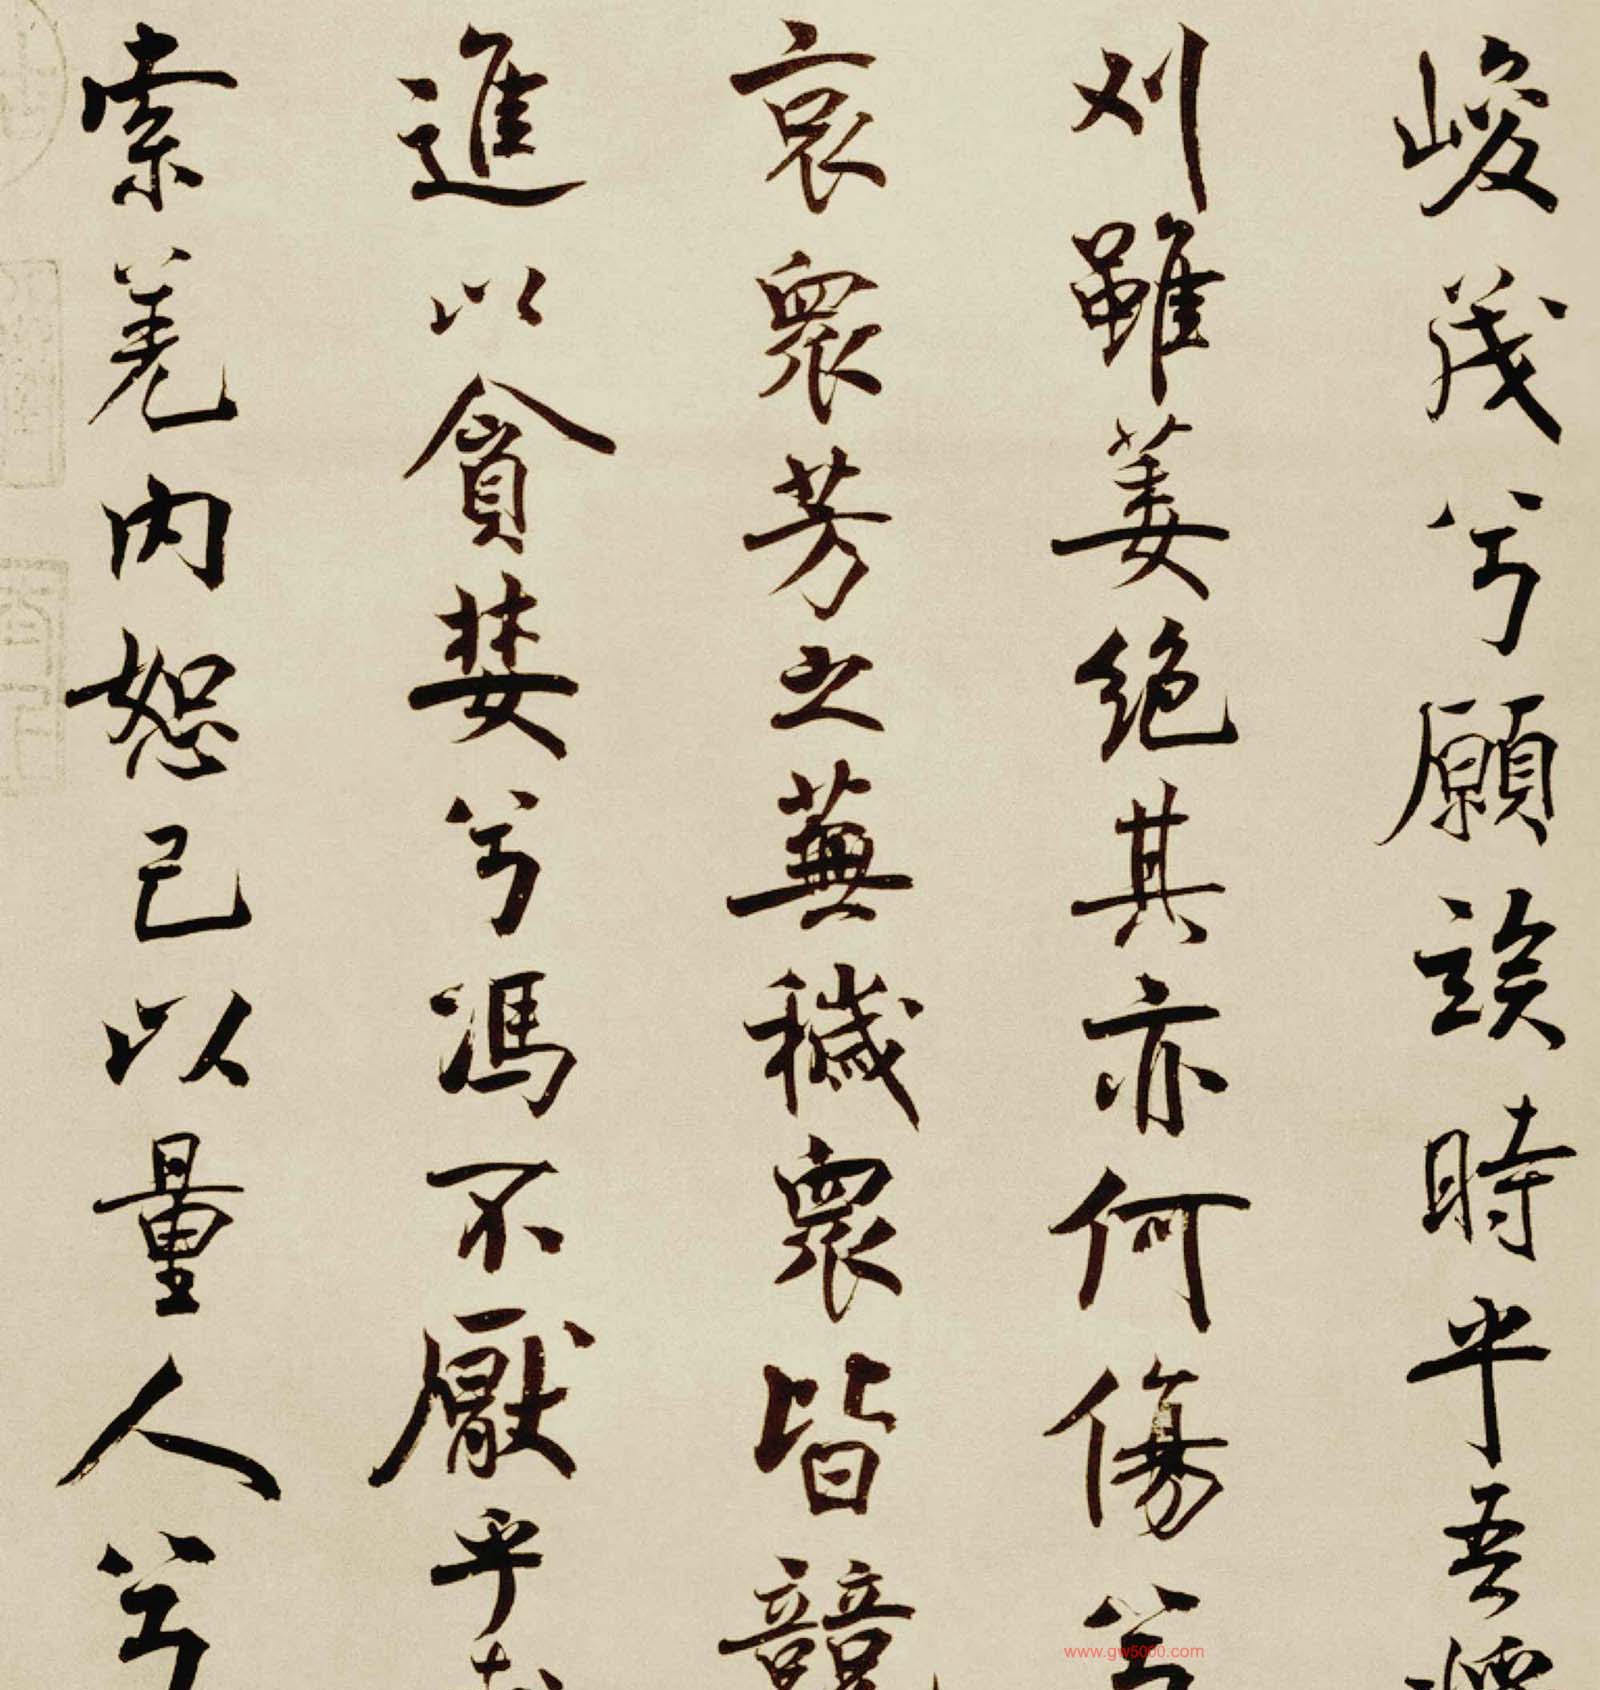 峻茂兮願竢時乎吾
刈雖萎絶其亦何傷兮
哀衆芳之蕪穢衆皆競
進以貪婪兮馮不厭乎
索羌内恕己以量人兮
www.gw5000.com